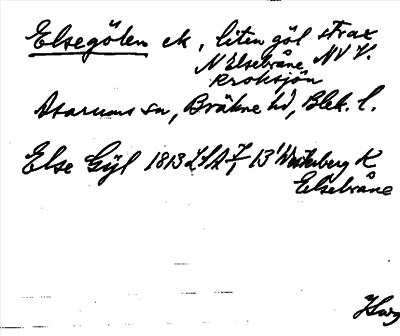 Elsegölen ek, liten göl strax
N Elsebråne NV V.
Kroksjön
Asarums sn, Bräkne hd, Blek. l.
Else Gyl 1813 LSA 13 Westerberg K
Elsebråne